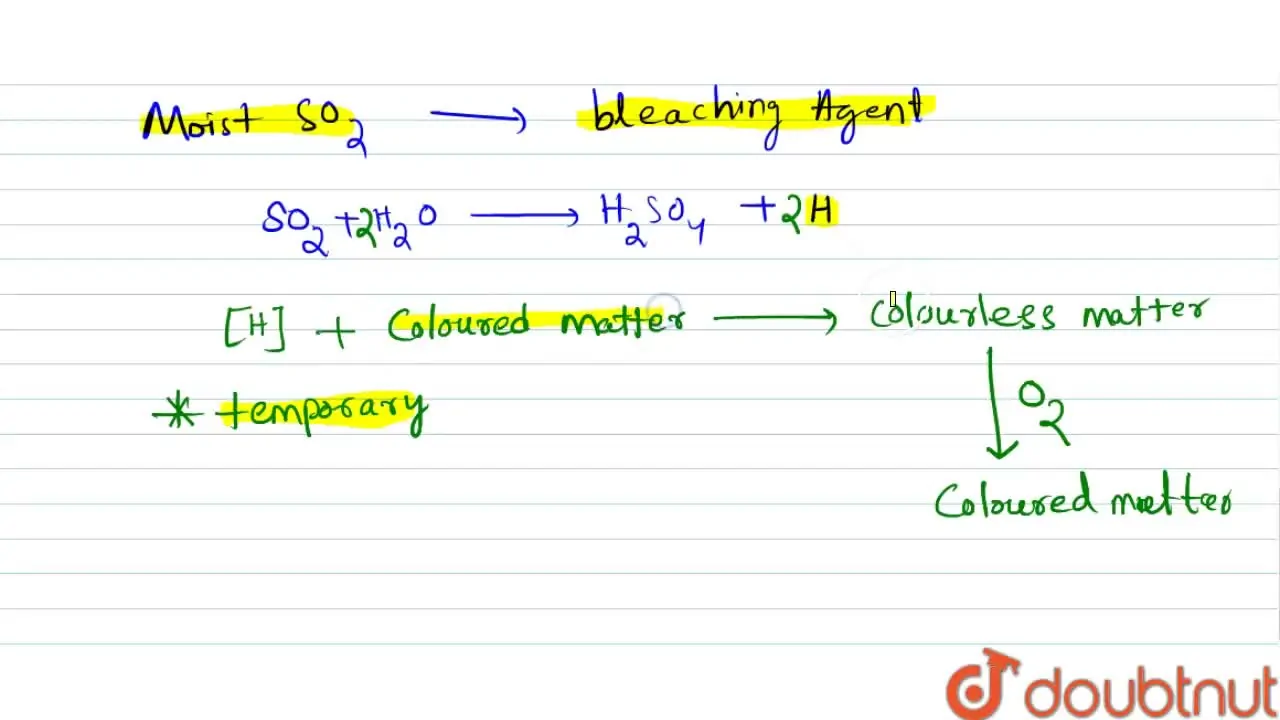 Moist SO₂ ⟶ bleaching Agent
SO₂ + 2H₂O ⟶ H₂SO₄ + 2H
[H] + Coloured matter ⟶ Colourless matter
↓ O₂
* temporary
Coloured matter
doubtnut